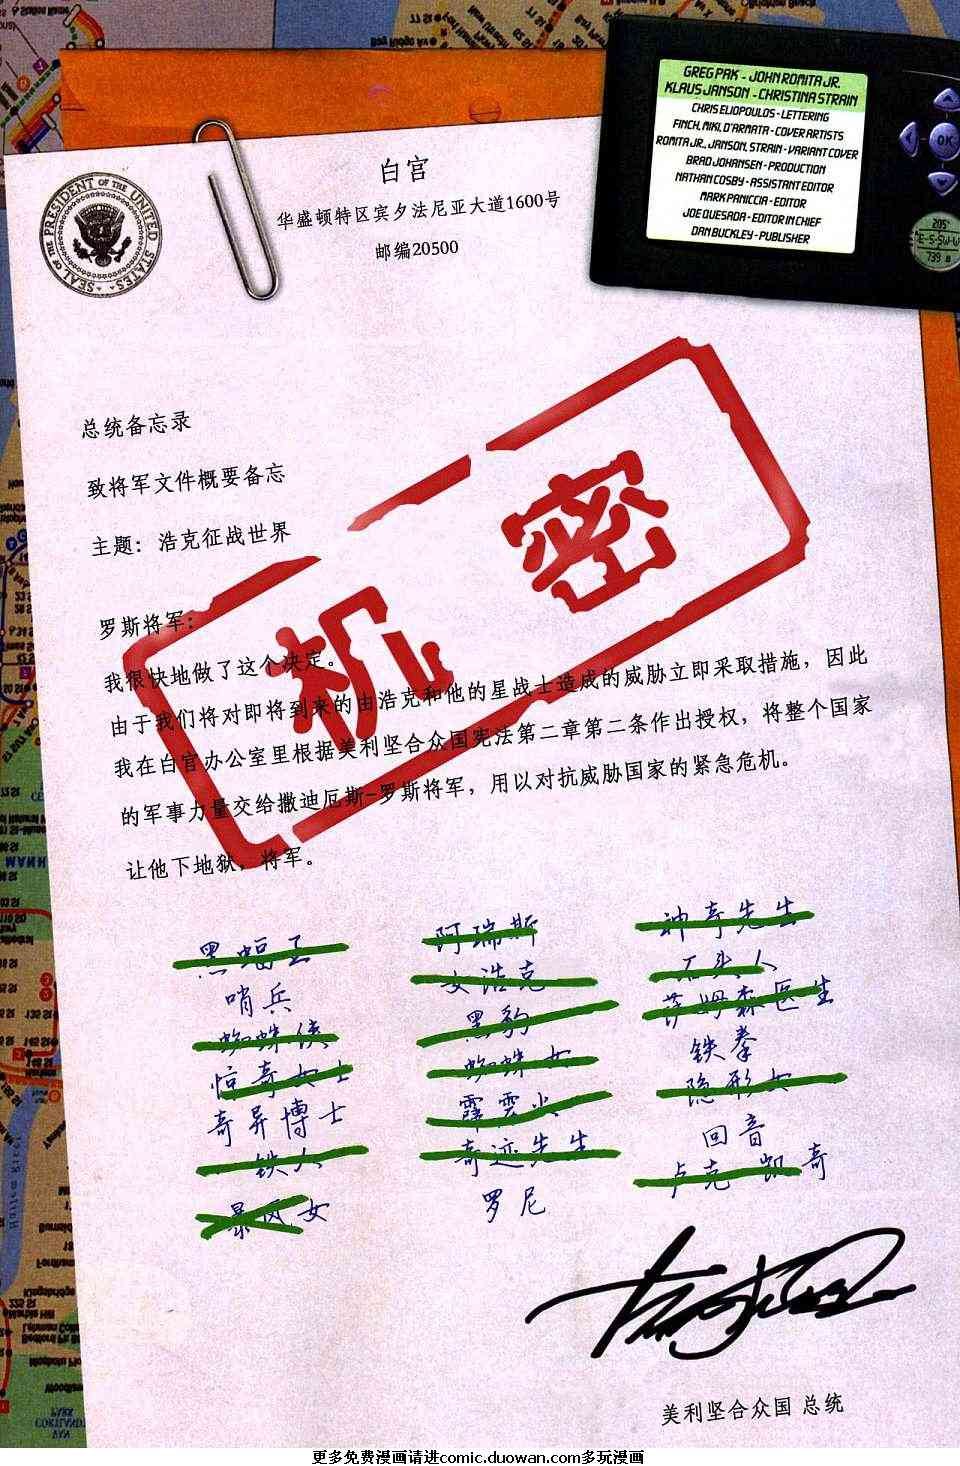 GREG PAK - JOHN ROMITA JR.
KLAUS JANSON - CHRISTINA STRAIN
CHRIS ELIOPOULOS - LETTERING
FINCH, MIKI, D'ARMATA - COVER ARTISTS
ROMITA JR., JANSON, STRAIN - VARIANT COVER
BRAD JOHANSEN - PRODUCTION
NATHAN COSBY - ASSISTANT EDITOR
MARK PANICCIA - EDITOR
JOE QUESADA - EDITOR IN CHIEF
DAN BUCKLEY - PUBLISHER
OK
205°
E-S-SW-W
739
SEAL OF THE PRESIDENT OF THE UNITED STATES
白宫
华盛顿特区宾夕法尼亚大道1600号
邮编20500
机密
总统备忘录
致将军文件概要备忘
主题：浩克征战世界
罗斯将军：
我很快地做了这个决定。
由于我们将对即将到来的由浩克和他的星战士造成的威胁立即采取措施，因此
我在白宫办公室里根据美利坚合众国宪法第二章第二条作出授权，将整个国家
的军事力量交给撒迪厄斯-罗斯将军，用以对抗威胁国家的紧急危机。
让他下地狱，将军。
黑蝠王
哨兵
蜘蛛侠
惊奇女士
奇异博士
铁人
暴风女
阿瑞斯
女浩克
黑豹
蜘蛛女
霹雳火
奇迹先生
罗尼
神奇先生
石头人
萨姆森医生
铁拳
隐形女
回音
卢克 凯奇
美利坚合众国 总统
更多免费漫画请进comic.duowan.com多玩漫画